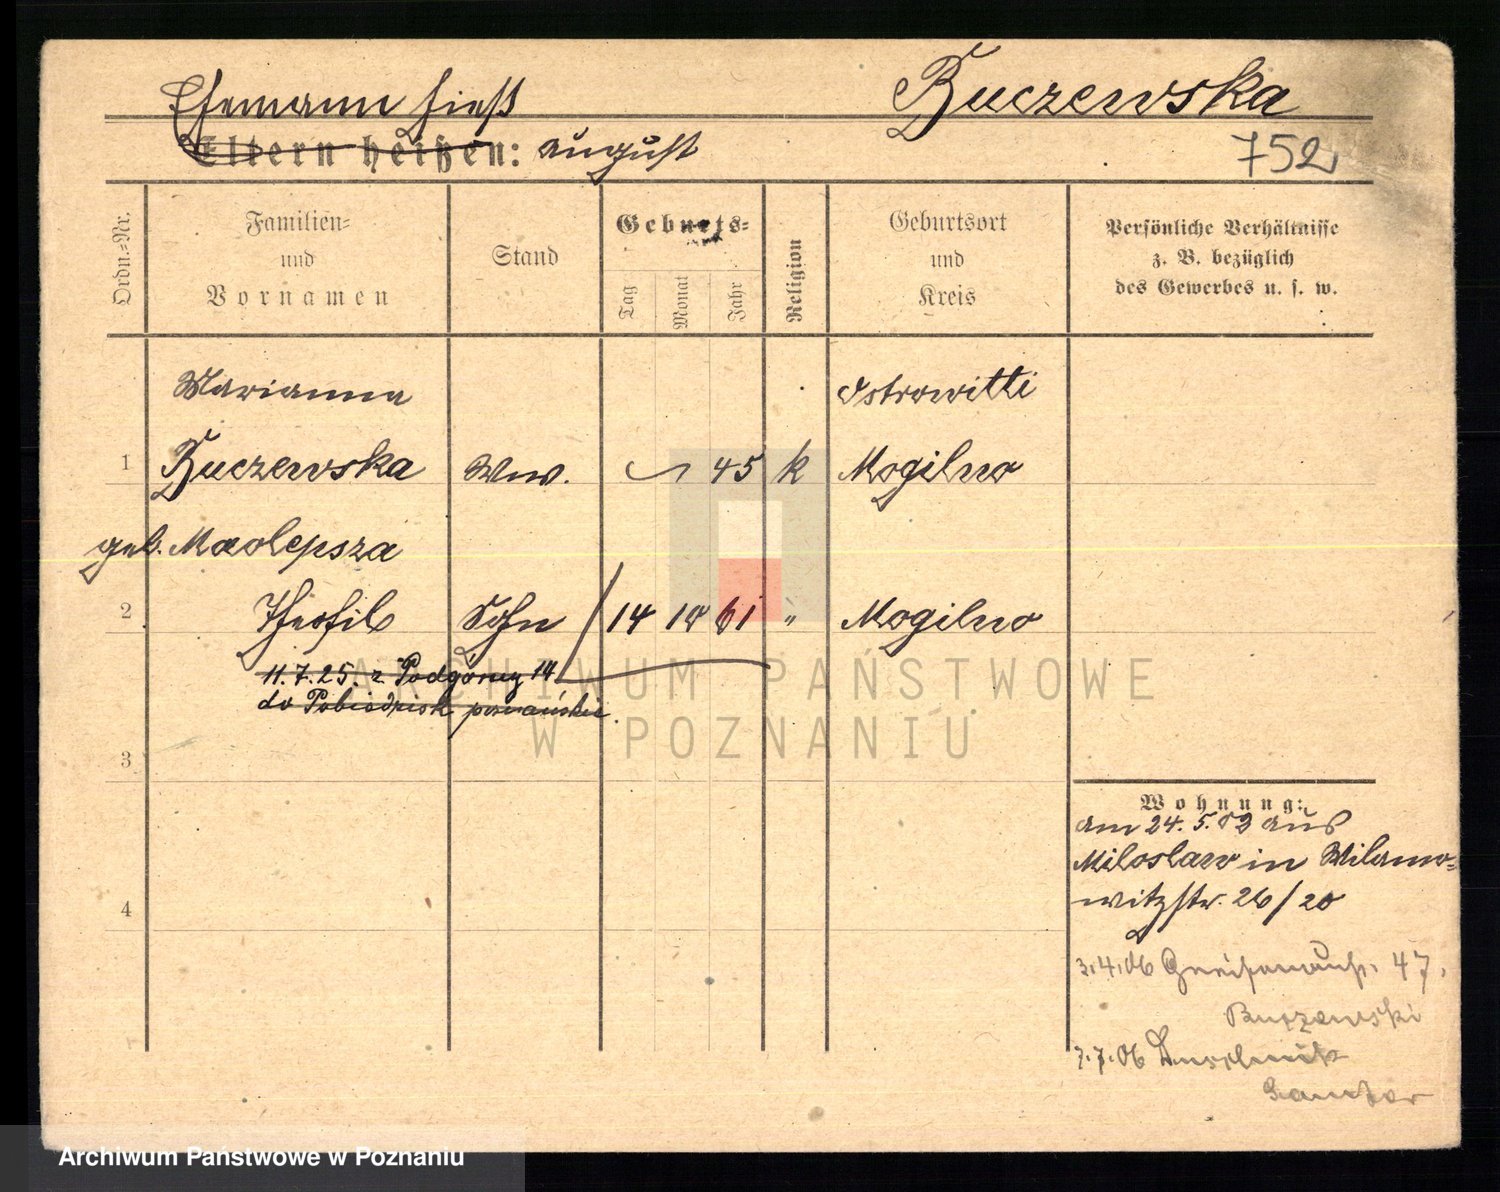 Ehemann hieß
Buczewska
Eltern heißen: August
752
Ordn.=Nr.
Familien=
und
Vornamen
Stand
Geburts=
Tag
Monat
Jahr
Religion
Geburtsort
und
Kreis
Persönliche Verhältnisse
z. B. bezüglich
des Gewerbes u. s. w.
Marianna
Ostrowitti
1 Buczewska Ww. 45 k Mogilno
geb. Maolepsza
2 Theofil Sohn 14 10 61 " Mogilno
11.7.25. z Podgórnej 14
do Pobiedzisk poznańskie
3
4
Wohnung:
am 24.5.02 aus
Miloslaw in Wilamo=
witzstr. 26/20
3.4.06 47.
Buczewski
7.7.06
Kantor
ARCHIWUM PAŃSTWOWE
W POZNANIU
Archiwum Państwowe w Poznaniu